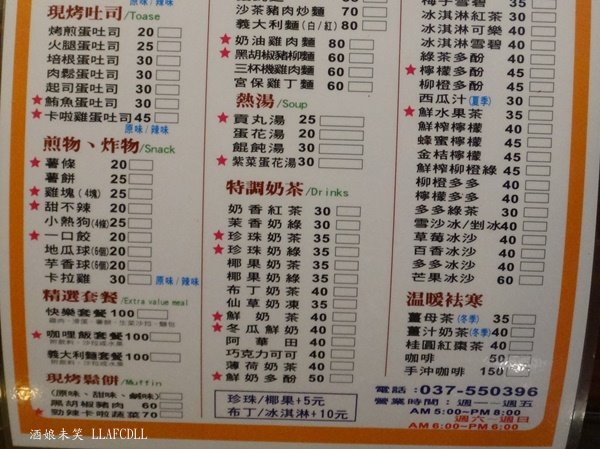 原味/辣味
現烤吐司/Toase
烤煎蛋吐司 20
火腿蛋吐司 25
培根蛋吐司 30
肉鬆蛋吐司 30
起司蛋吐司 30
★鮪魚蛋吐司 30
★卡啦雞蛋吐司 45
原味/辣味
煎物、炸物/Snack
★薯條 20
薯餅 20
★雞塊(4塊) 25
★甜不辣 20
小熱狗(4條) 25
★一口餃 20
地瓜球(6個) 20
芋香球(6個) 20
卡拉雞 30 原味/辣味
精選套餐/Extra value meal
快樂套餐 100
★咖哩飯套餐 100
義大利麵套餐 100
現烤鬆餅/Muffin
(原味、甜味、鹹味)
黑胡椒豬肉 60
★勁辣卡啦蔬菜 70
沙茶豬肉炒麵 60
義大利麵(白/紅) 80
★奶油雞肉麵 80
★黑胡椒豬柳麵 60
三杯機雞肉麵 60
宮保雞丁麵 60
熱湯/Soup
★貢丸湯 25
蛋花湯 20
餛飩湯 30
★紫菜蛋花湯 30
特調奶茶/Drinks
奶香紅茶 30
茉香奶綠 30
★珍珠奶茶 35
★珍珠奶綠 35
椰果奶茶 35
椰果奶綠 35
布丁奶茶 40
仙草奶凍 35
★鮮奶茶 40
★冬瓜鮮奶 40
阿華田 40
巧克力可可 40
薄荷奶茶 40
★鮮奶多酚 50
珍珠/椰果+5元
布丁/冰淇淋+10元
梅子雪碧 35
冰淇淋紅茶 30
冰淇淋可樂 40
冰淇淋雪碧 40
綠茶多酚 40
★檸檬多酚 45
柳橙多酚 45
西瓜汁(夏季) 30
★鮮水果茶 35
鮮榨檸檬 40
蜂蜜檸檬 45
金桔檸檬 45
鮮榨柳橙綠 45
柳橙多多 40
檸檬多多 40
多多綠茶 30
雪沙冰/剉冰 40
草莓冰沙 40
百香冰沙 40
多多冰沙 40
芒果冰沙 60
温暖袪寒
薑母茶(冬季) 35
薑汁奶茶(冬季) 40
桂圓紅棗茶 40
咖啡 50
手沖咖啡 150
電話:037-550396
營業時間:週一-週五
AM 5:00~PM 8:00
週六-週日
AM 6:00~PM 6:00
酒娘未笑 LLAFCDLL